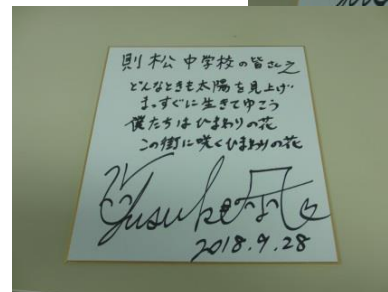 則松中学校の皆さんへ
どんなときも太陽を見上げ
まっすぐに生きてゆこう
僕たちはひまわりの花
この街に咲くひまわりの花
Yusuke
2018.9.28